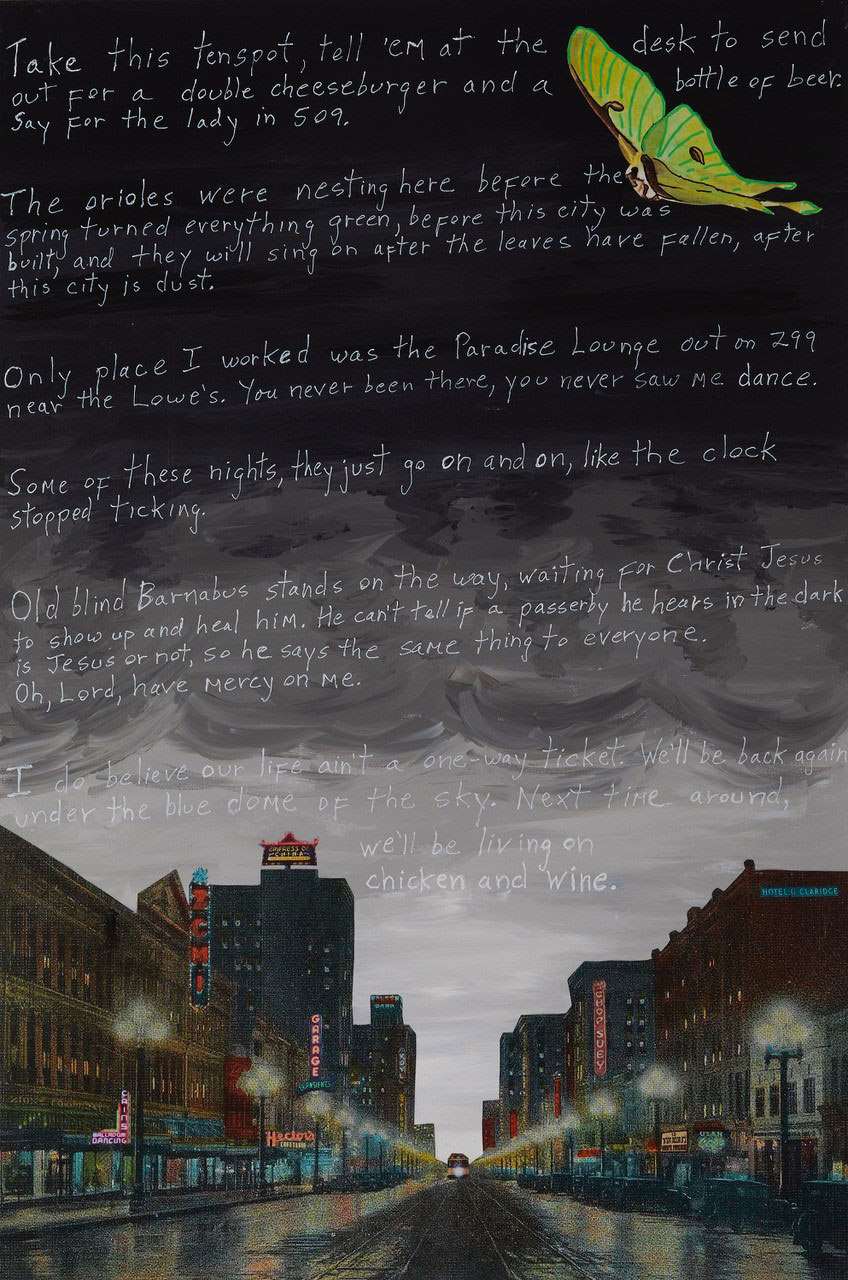 Take this tenspot, tell 'em at the desk to send
out for a double cheeseburger and a bottle of beer.
Say for the lady in 509.
The orioles were nesting here before the
spring turned everything green, before this city was
built, and they will sing on after the leaves have fallen, after
this city is dust.
Only place I worked was the Paradise Lounge out on 299
near the Lowe's. You never been there, you never saw me dance.
Some of these nights, they just go on and on, like the clock
stopped ticking.
Old blind Barnabus stands on the way, waiting for Christ Jesus
to show up and heal him. He can't tell if a passerby he hears in the dark
is Jesus or not, so he says the same thing to everyone.
Oh, Lord, have mercy on me.
I do believe our life ain't a one-way ticket. We'll be back again
under the blue dome of the sky. Next time around,
we'll be living on
chicken and wine.
EMPRESS OF
CHINA
HOTEL CLARIDGE
ZCMI
GARAGE
CHOP SUEY
BALLROOM
DANCING
Hector's
CAFETERIA